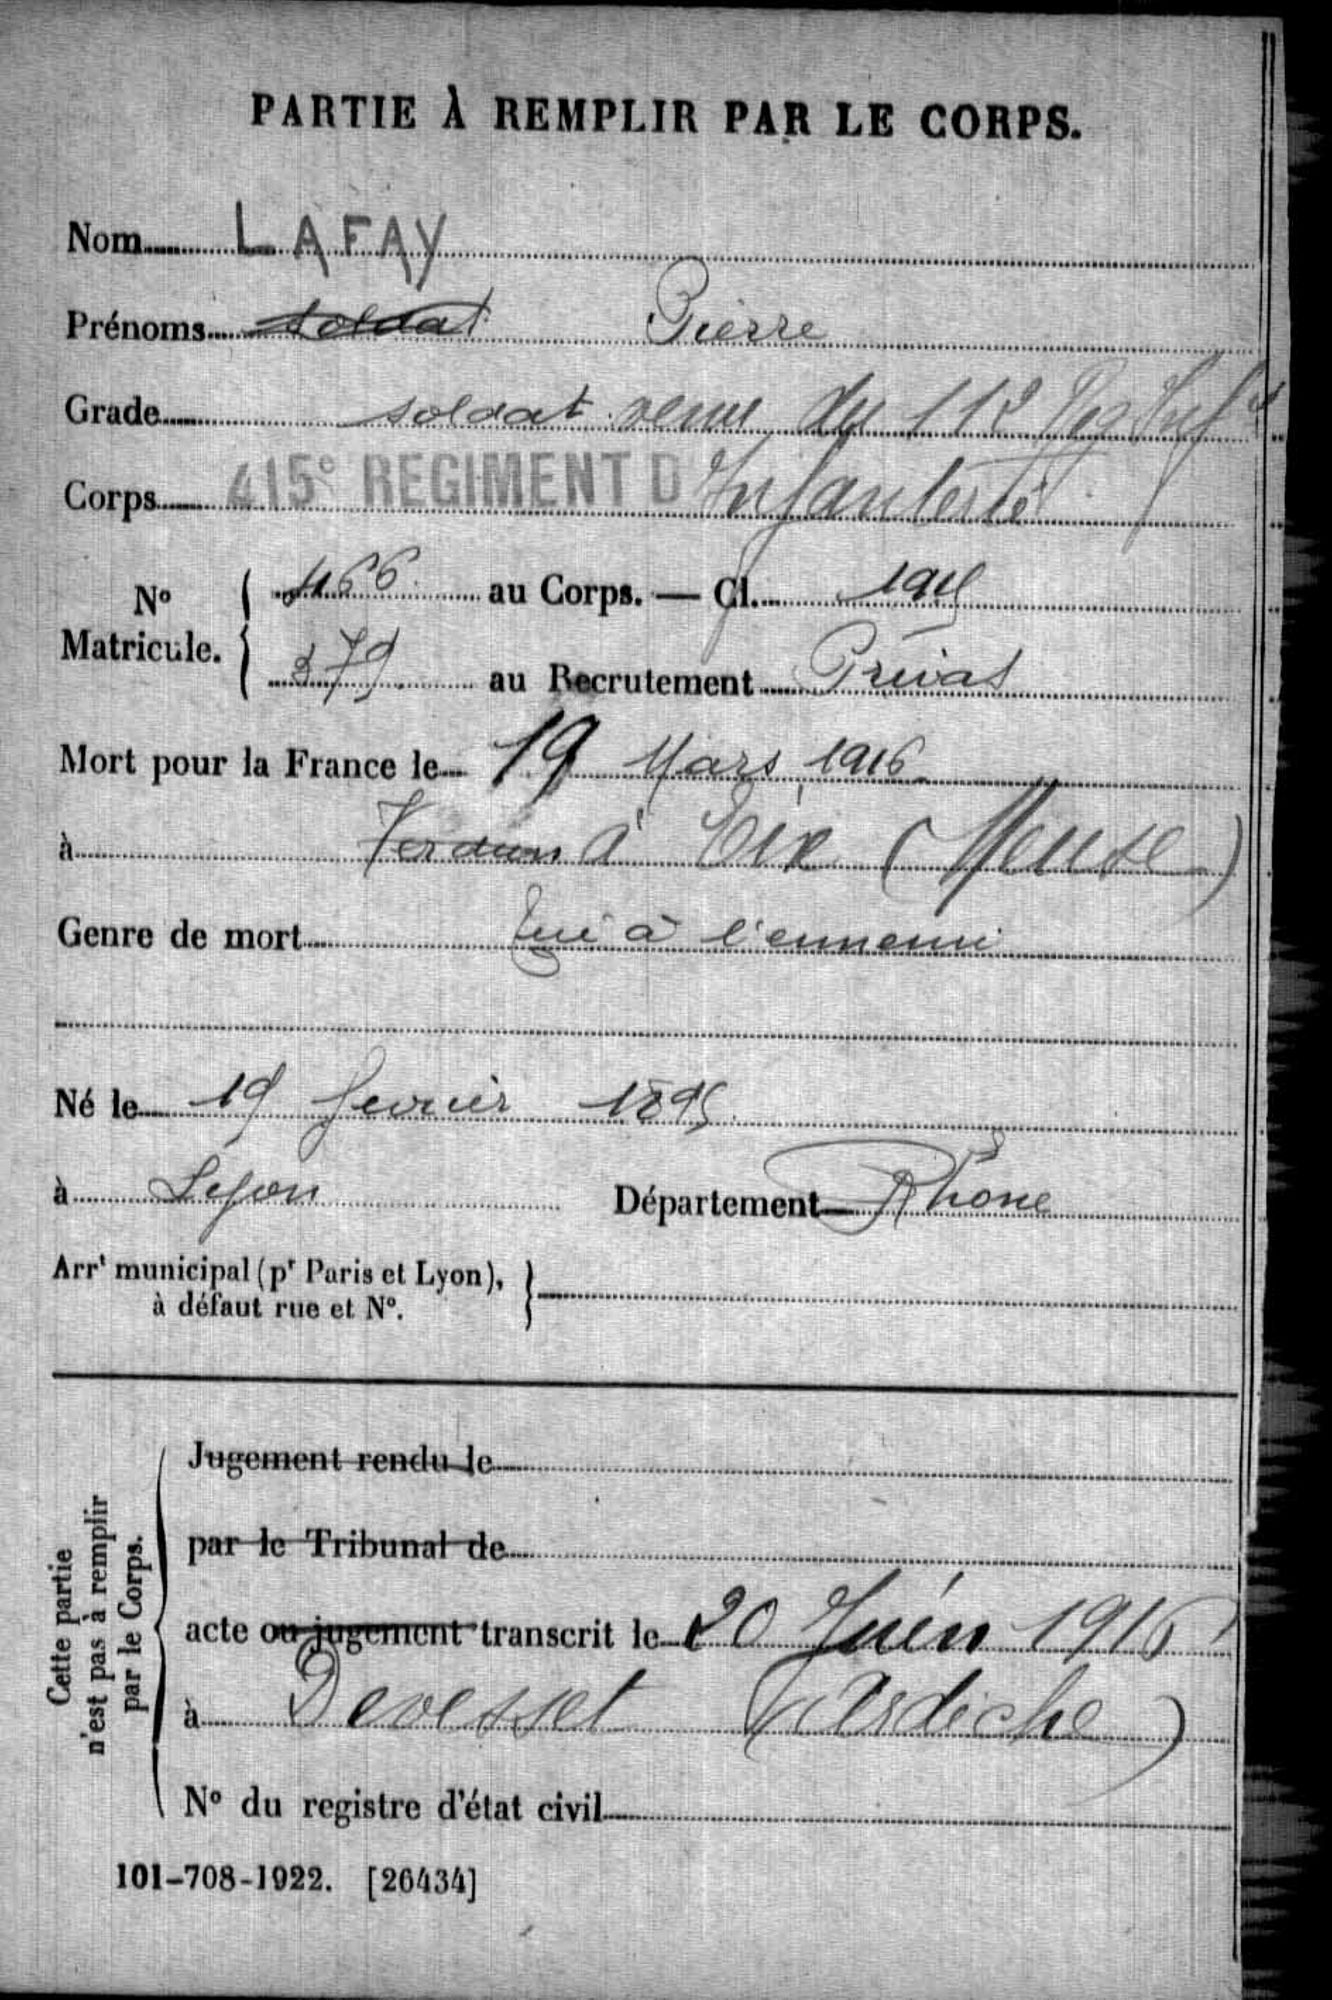 PARTIE À REMPLIR PAR LE CORPS.
Nom LAFAY
Prénoms soldat Pierre
Grade soldat venu du 112 Reg Inf
Corps 415e REGIMENT D Infanterie
No Matricule. 466 au Corps. — Cl. 1915
379 au Recrutement Privas
Mort pour la France le 19 Mars 1916
à Verdun à Eix (Meuse)
Genre de mort tué à l'ennemi
Né le 19 fevrier 1895
à Lyon Département Rhône
Arrt municipal (pr Paris et Lyon),
à défaut rue et No.
Cette partie
n'est pas à remplir
par le Corps.
Jugement rendu le
par le Tribunal de
acte ou jugement transcrit le 20 Juin 1916
à Devesset (Ardèche)
No du registre d'état civil
101-708-1922. [26434]